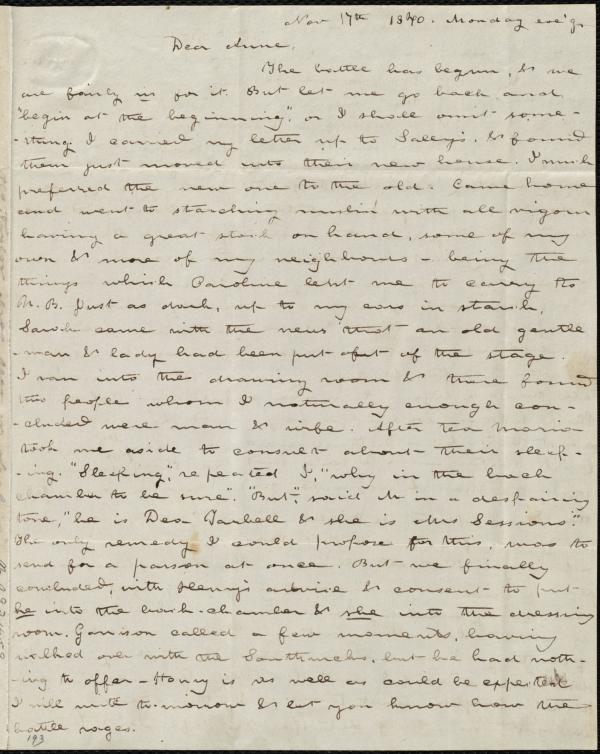 Nov 17th 1840. Monday eve'g.
Dear Anne,
The battle has begun, & we
are fairly in for it. But let me go back and
"begin at the beginning", or I shall omit some-
-thing. I carried my letter up to Sally's, & found
them just moved into their new house. I much
preferred the new one to the old. Came home
and went to starching muslin with all vigour
having a great stock on hand, some of my
own & more of my neighbours - being the
things which Caroline left me to carry to
N. B. Just as dark, up to my ears in starch,
Sarah came with the news that an old gentle
-man & lady had been put out of the stage.
I ran into the drawing room & there found
two people whom I naturally enough con-
-cluded were man & wife. After tea Maria
took me aside to consult about their sleep-
-ing. "Sleeping", repeated I, "why in the back
chamber to be sure". "But", said M in a despairing
tone, "he is Dea Tarbell & she is Mrs Sessions".
The only remedy I could propose for this, was to
send for a parson at once. But we finally
concluded, with Henry's advice & consent to put
he into the back-chamber & she into the dressing
room. Garrison called a few moments, having
walked over with the Southwicks, but he had noth-
-ing to offer - Henry is as well as could be expected
I will write to-morrow & let you know how the
battle rages.
193